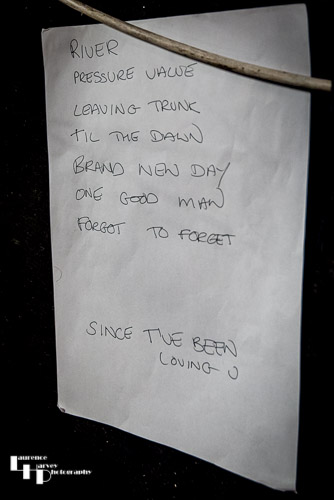 RIVER
PRESSURE VALVE
LEAVING TRUNK
TIL THE DAWN
BRAND NEW DAY
ONE GOOD MAN
FORGOT TO FORGET
SINCE I'VE BEEN
LOVING U
Laurence
Harvey
Photography